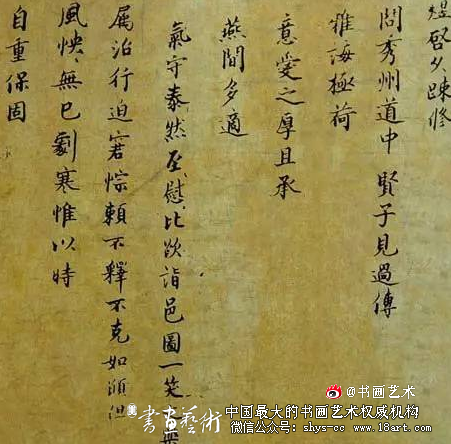 煜啓久踈修
問秀州道中賢子見過傳
雅誨極荷
意愛之厚且承
燕間多適
氣守泰然至慰比欲詣邑圖一笑
属治行迫窘悰賴不釋不克如願但
風怏無已劇寒惟以時
自重保固
@书画艺术
書画藝術 中国最大的书画艺术权威机构
微信公众号: shys-cc www.18art.com